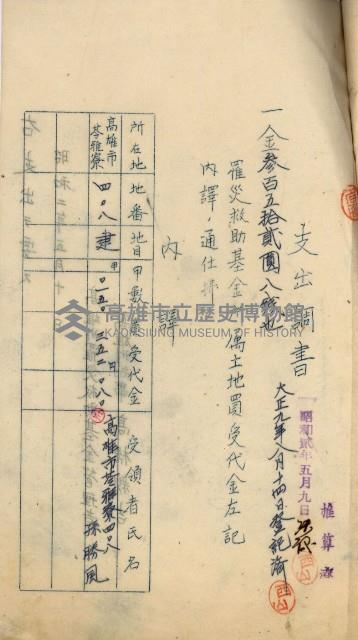 支出調書
一金參百五拾貳圓八錢也
大正九年八月十四日登記濟
昭和貳年五月九日
推算濟
罹災救助基金ニ屬土地買受代金左記
內譯ノ通仕拂
內譯
所在地 地番 地目 甲數 買受代金 受領者氏名
高雄市苓雅寮 四〇八 建 甲 〇一五〇 三五二円〇八〇 高雄市苓雅寮四〇八 孫勝風
高雄市立歷史博物館
KAOHSIUNG MUSEUM OF HISTORY